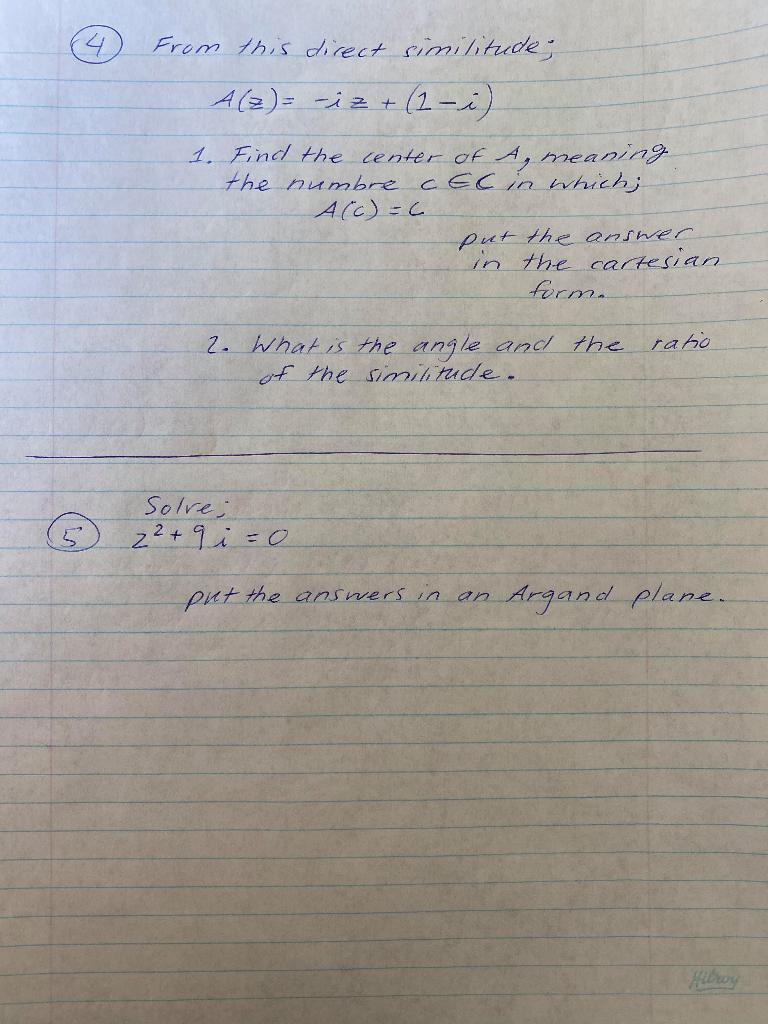 4 From this direct similitude;
A(z)= -iz + (1-i)
1. Find the center of A, meaning
the numbre c ∈ C in which;
A(c) = c
put the answer
in the cartesian
form.
2. What is the angle and the ratio
of the similitude.
Solve;
5 z²+9i=0
put the answers in an Argand plane.
Hilroy